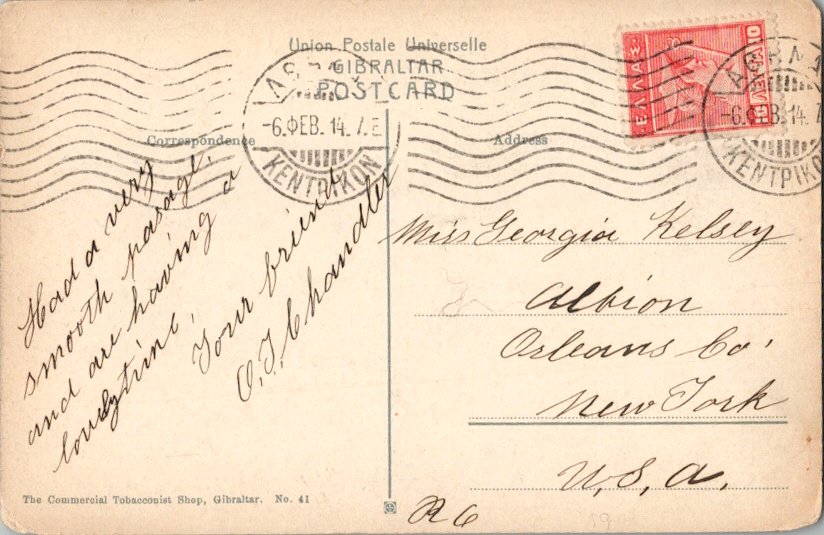 Union Postale Universelle
GIBRALTAR
POSTCARD
Correspondence
Address
ΕΛΛΑΣ
10
10
-6.ΦΕΒ. 14. 7.Ε
ΚΕΝΤΡΙΚΟΝ
-6.ΦΕΒ. 14. 7.
ΚΕΝΤΡΙΚΟΝ
Had a very
smooth pasage.
and are having a
lovely time.
Your friend
O.T. Chandler
Miss Georgia Kelsey
Albion
Orleans Co.
New York
U.S.A.
R6
The Commercial Tobacconist Shop, Gibraltar. No. 41